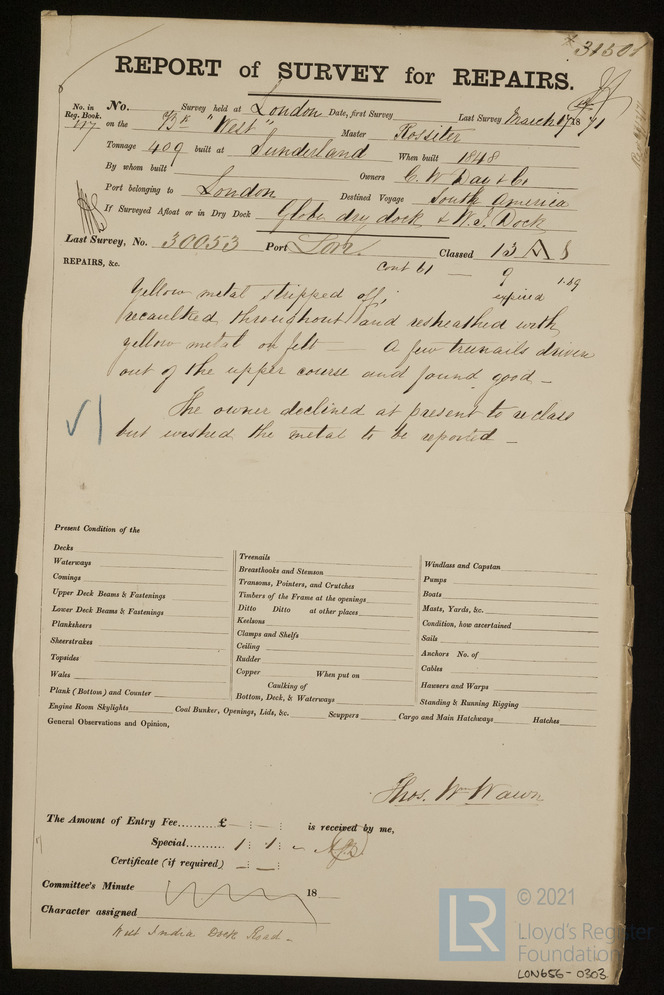 31501
REPORT of SURVEY for REPAIRS.
No. in Reg. Book. 117
No. Survey held at London Date, first Survey Last Survey March 17 1871
on the Bk "West" Master Rossiter
Tonnage 409 built at Sunderland When built 1848
By whom built Owners C. W. Day & Co
Port belonging to London Destined Voyage South America
If Surveyed Afloat or in Dry Dock Globe dry dock & W. I. Dock
Last Survey, No. 30053 Port Lon. Classed 13 A
cont 61 — 9 1.69
expired
REPAIRS, &c.
Yellow metal stripped off,
recaulked throughout and resheathed with
yellow metal on felt — A few treenails driven
out of the upper course and found good —
The owner declined at present to reclass
but wished the metal to be reported —
Present Condition of the
Decks
Waterways
Comings
Upper Deck Beams & Fastenings
Lower Deck Beams & Fastenings
Planksheers
Sheerstrakes
Topsides
Wales
Plank (Bottom) and Counter
Treenails
Breasthooks and Stemson
Transoms, Pointers, and Crutches
Timbers of the Frame at the openings
Ditto Ditto at other places
Keelsons
Clamps and Shelfs
Ceiling
Rudder
Copper When put on
Caulking of
Bottom, Deck, & Waterways
Windlass and Capstan
Pumps
Boats
Masts, Yards, &c.
Condition, how ascertained
Sails
Anchors No. of
Cables
Hawsers and Warps
Standing & Running Rigging
Engine Room Skylights Coal Bunker, Openings, Lids, &c. Scuppers Cargo and Main Hatchways Hatches
General Observations and Opinion,
Thos. Wm Wawn
The Amount of Entry Fee.......... £ — : — : is received by me,
Special.......... 1 : 1 : –
Certificate (if required) — : — :
Committee's Minute 18
Character assigned
West India Dock Road –
LR
© 2021
Lloyd's Register
Foundation
LON656-0303